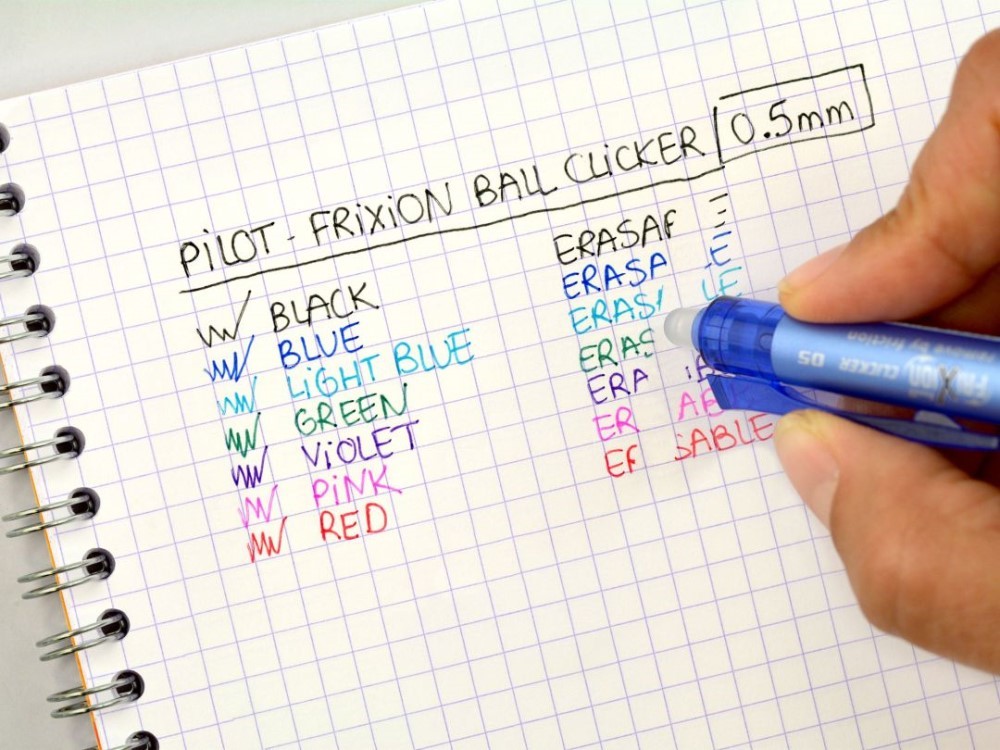 PiLOT - FRiXiON BALL CLiCKER 0.5mm
BLACK
BLUE
LiGHT BLUE
GREEN
ViOLET
PiNK
RED
ERASA
ERASA E
ERAS LE
ERAS
ERA
ER AB
E SABLE
FRiXion CLICKER 05
remove by friction